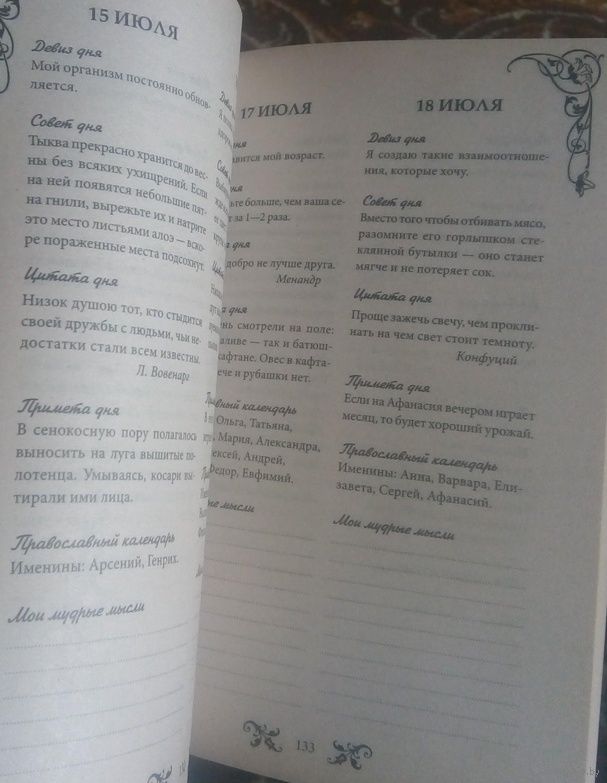 15 ИЮЛЯ
Девиз дня
Мой организм постоянно обнов-
ляется.
Совет дня
Тыква прекрасно хранится до вес-
ны без всяких ухищрений. Если
на ней появятся небольшие пят-
на гнили, вырежьте их и натрите
это место листьями алоэ — вско-
ре пораженные места подсохнут.
Цитата дня
Низок душою тот, кто стыдится
своей дружбы с людьми, чьи не-
достатки стали всем известны.
Л. Вовенарг
Примета дня
В сенокосную пору полагалось
выносить на луга вышитые по-
лотенца. Умываясь, косари вы-
тирали ими лица.
Православный календарь
Именины: Арсений, Генрих.
Мои мудрые мысли
17 ИЮЛЯ
дня
мой возраст.
дня
больше, чем ваша се-
за 1—2 раза.
дня
добро не лучше друга.
Менандр
дня
смотрели на поле:
— так и батюш-
Овес в кафта-
и рубашки нет.
календарь
Ольга, Татьяна,
Мария, Александра,
Андрей,
Евфимий.
мысли
18 ИЮЛЯ
Девиз дня
Я создаю такие взаимоотноше-
ния, которые хочу.
Совет дня
Вместо того чтобы отбивать мясо,
разомните его горлышком сте-
клянной бутылки — оно станет
мягче и не потеряет сок.
Цитата дня
Проще зажечь свечу, чем прокли-
нать на чем свет стоит темноту.
Конфуций
Примета дня
Если на Афанасия вечером играет
месяц, то будет хороший урожай.
Православный календарь
Именины: Анна, Варвара, Ели-
завета, Сергей, Афанасий.
Мои мудрые мысли
133